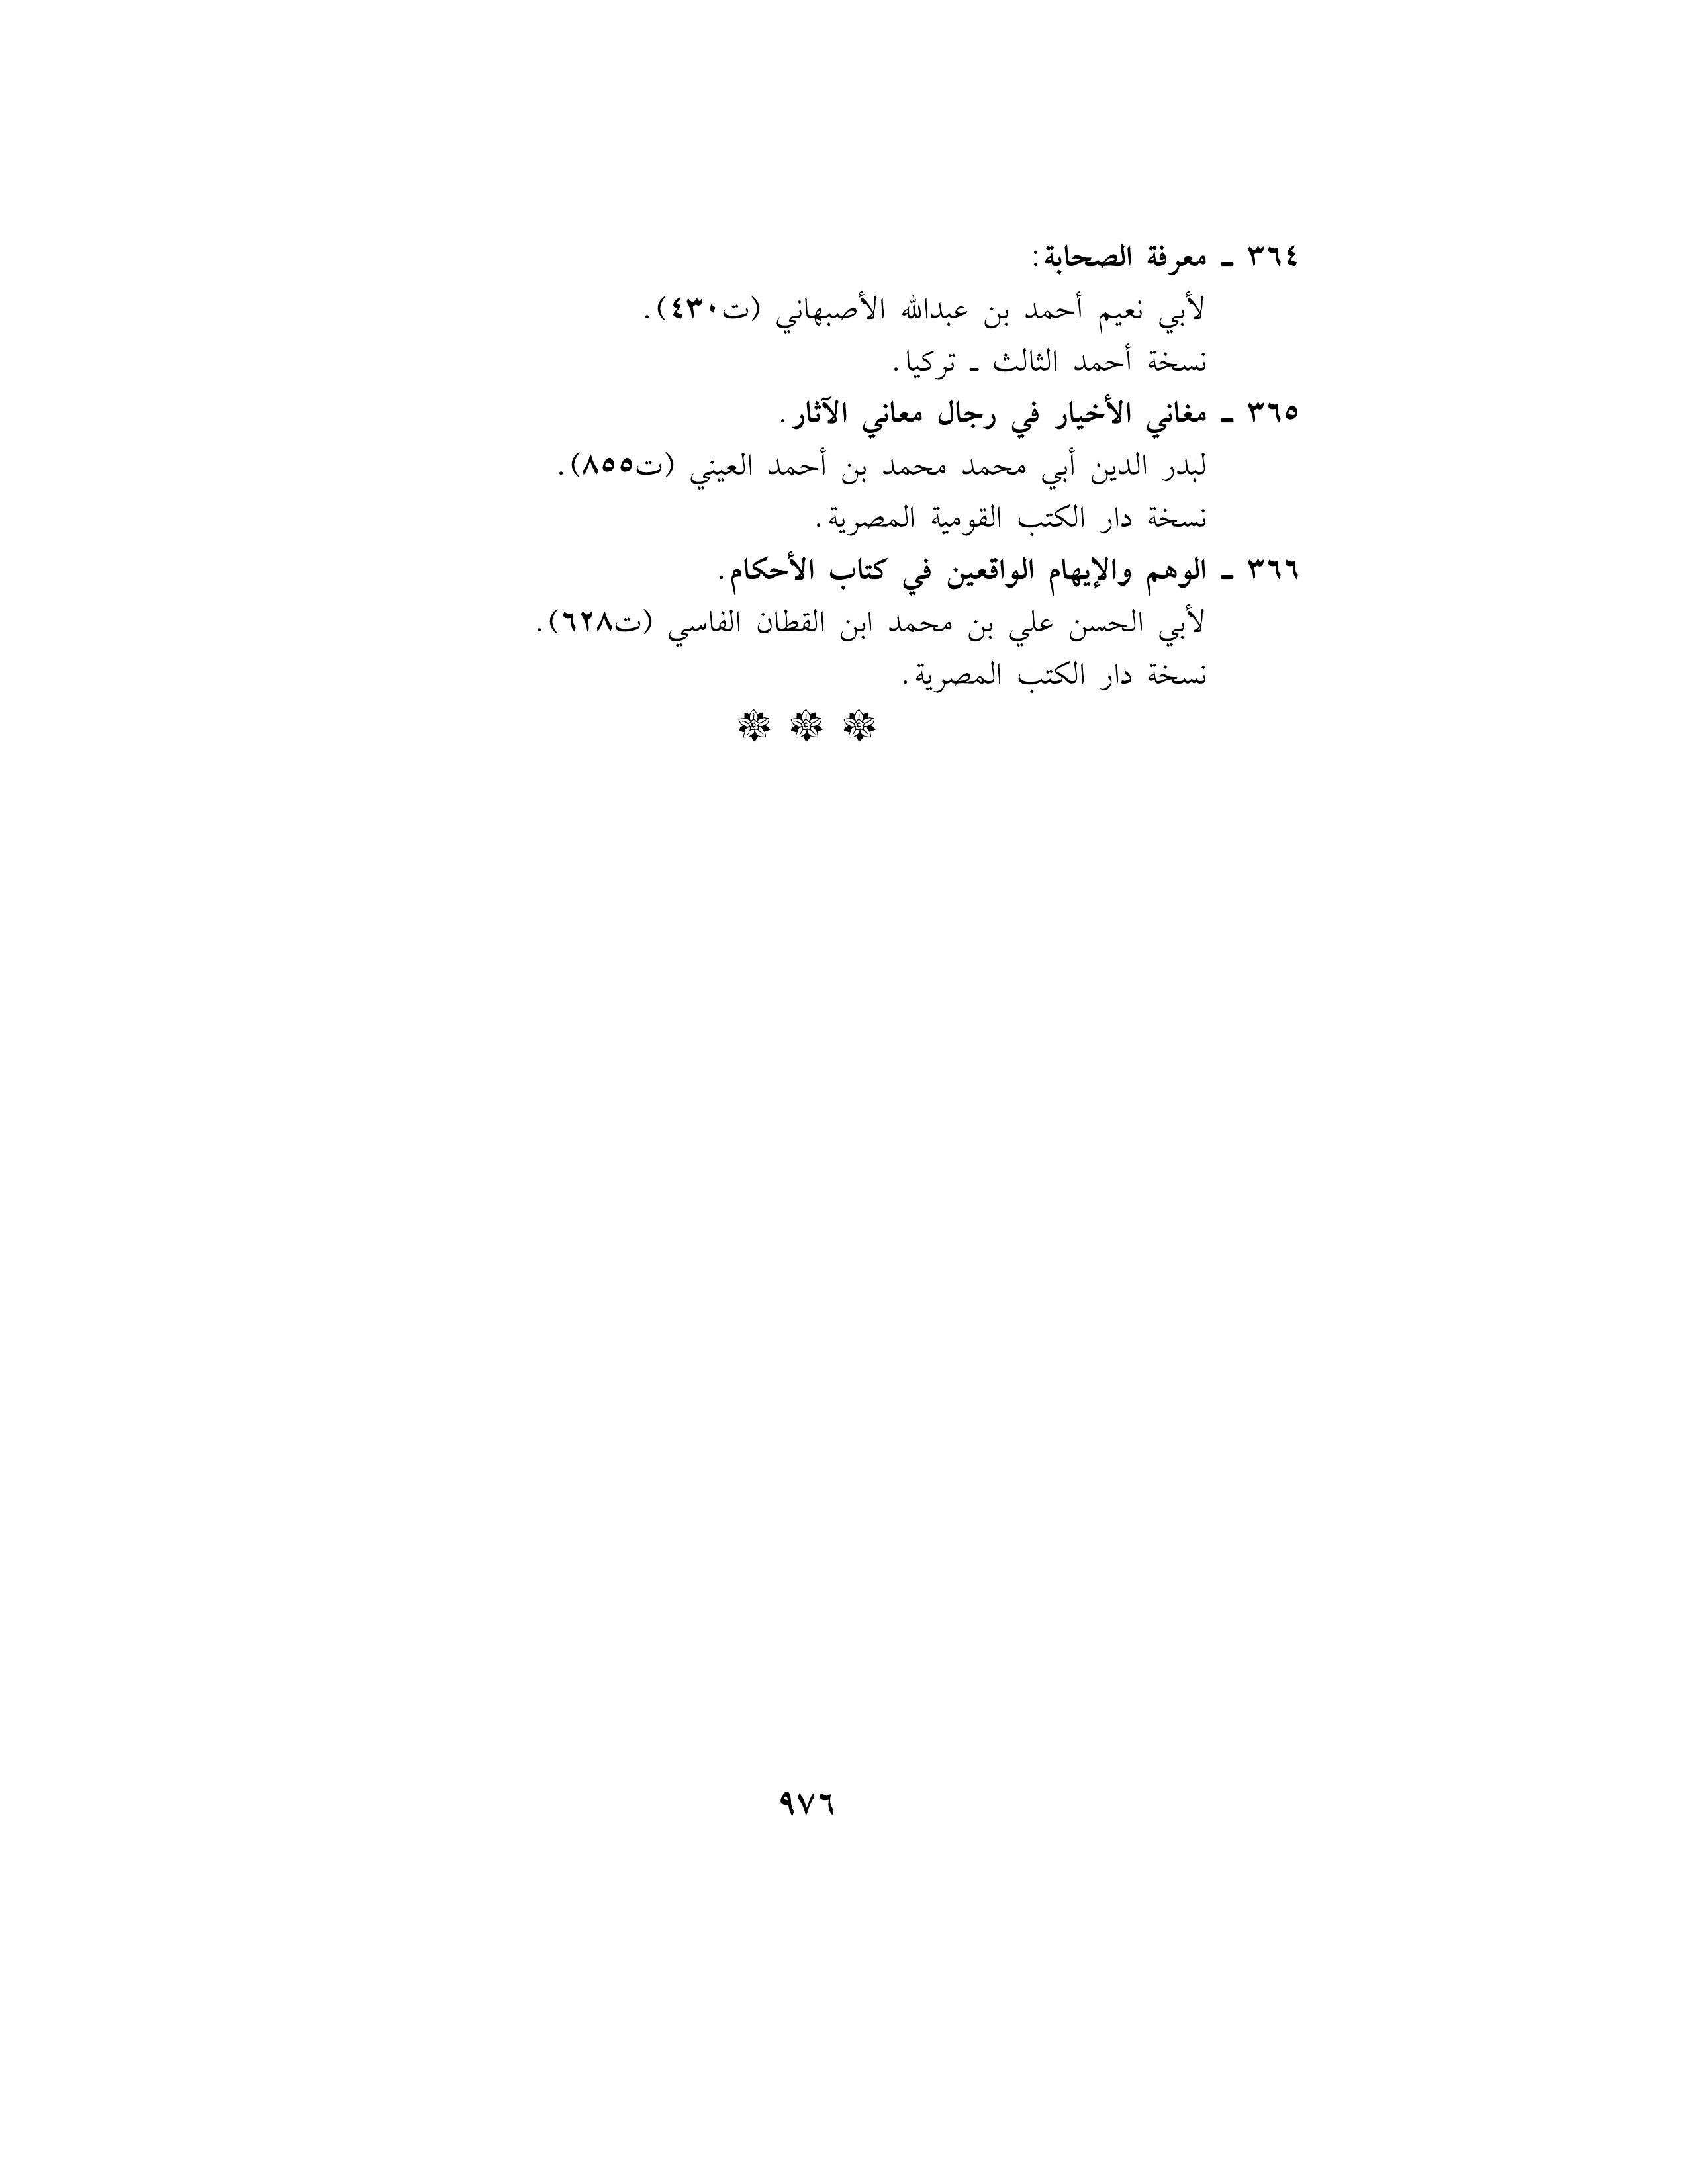 ٣٦٤ ـ معرفة الصحابة:
لأبي نعيم أحمد بن عبدالله الأصبهاني (ت٤٣٠).
نسخة أحمد الثالث ـ تركيا.
٣٦٥ ـ مغاني الأخيار في رجال معاني الآثار.
لبدر الدين أبي محمد محمد بن أحمد العيني (ت٨٥٥).
نسخة دار الكتب القومية المصرية.
٣٦٦ ـ الوهم والإيهام الواقعين في كتاب الأحكام.
لأبي الحسن علي بن محمد ابن القطان الفاسي (ت٦٢٨).
نسخة دار الكتب المصرية.
٩٧٦